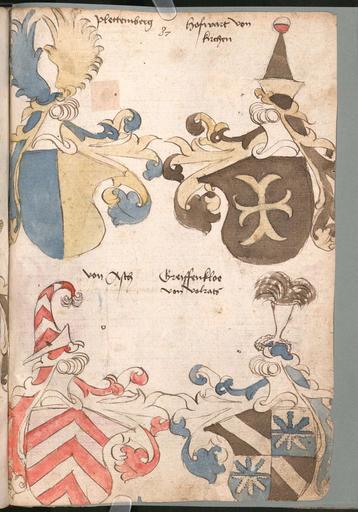 Plettemberg
37
Hofwart von
kirchen
von Asch
Greiffenkloe
von volrats